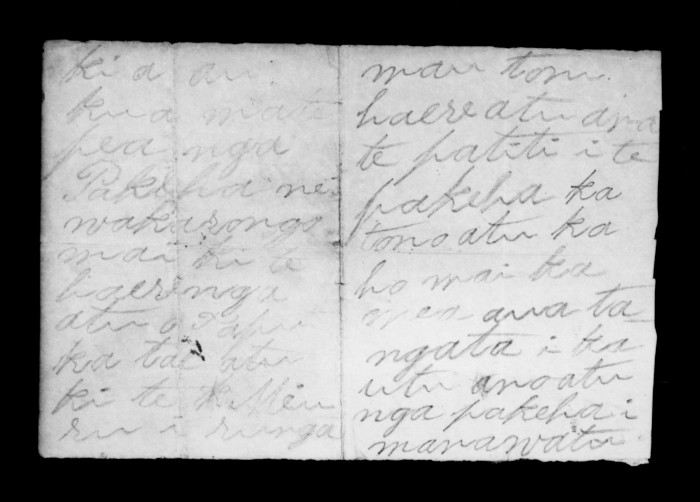 ki a au.
kua mate
pea nga
Pakeha ne
wakarongo
mai ki te
haerenga
atu o
ka tae atu
ki te
ru i runga
mau tonu.
haereatu ana
te patiti i te
pakeha ka
tonoatu ka
ho mai ka
mea aua ta
ngata i ka
utu anoatu
nga pakeha i
manawatu